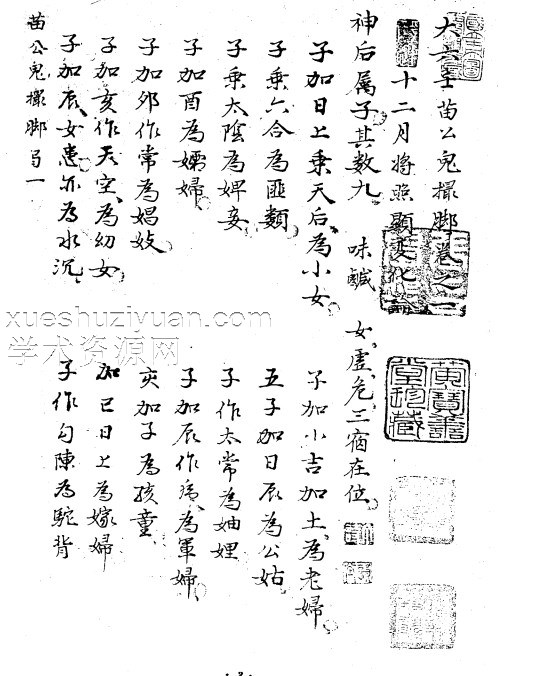 大六壬苗公鬼撮脚卷之一
十二月將照顯變化論
神后属子其数九 味鹹 女虛危三宿在位
子加日上乘天后為小女 子加小吉加土為老婦
子乘六合為匪類 五子加日辰為公姑
子乘太陰為婢妾 子作太常為妯娌
子加酉為孀婦 子加辰作為軍婦
子加夘作常為娼妓 亥加子為孩童
子加亥作天空為幼女 加巳日上為嫁婦
子加辰女患亦為水沉 子作勾陳為駝背
苗公鬼撮脚 一
xueshuziyuan.com
学术资源网
黄寶善堂珍藏